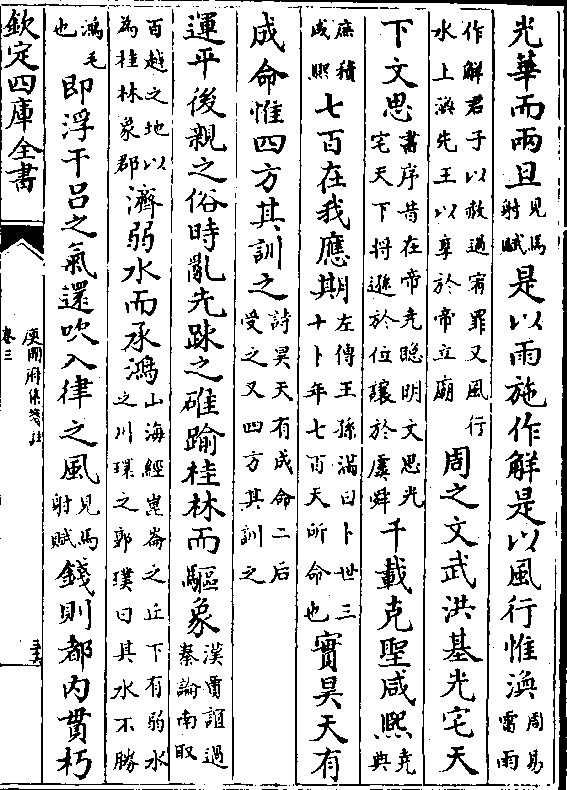 光華而兩且見馬射賦是以雨施作解是以風行惟渙周易雷雨
作解君子以赦過宥罪又風行水上渙先王以享於帝立廟周之文武洪基光宅天
下文思書序昔在帝堯聰明文思光宅天下将遜於位讓於虞舜千載克聖咸熙堯典
庶積咸熙七百在我應期左傳王孫滿曰卜世三十卜年七百天所命也實昊天有
成命惟四方其訓之詩昊天有成命二后受之又四方其訓之
運平後親之俗時亂先踈之雖踰桂林而驅象漢賈誼過秦論南取
百越之地以為桂林象郡濟弱水而承鴻山海經崑崙之丘下有弱水之川環之郭璞曰其水不勝
鴻毛也即浮干呂之氣還吹入律之風見馬射賦錢則都内貫朽
欽定四庫全書
庾開府集箋註
卷三